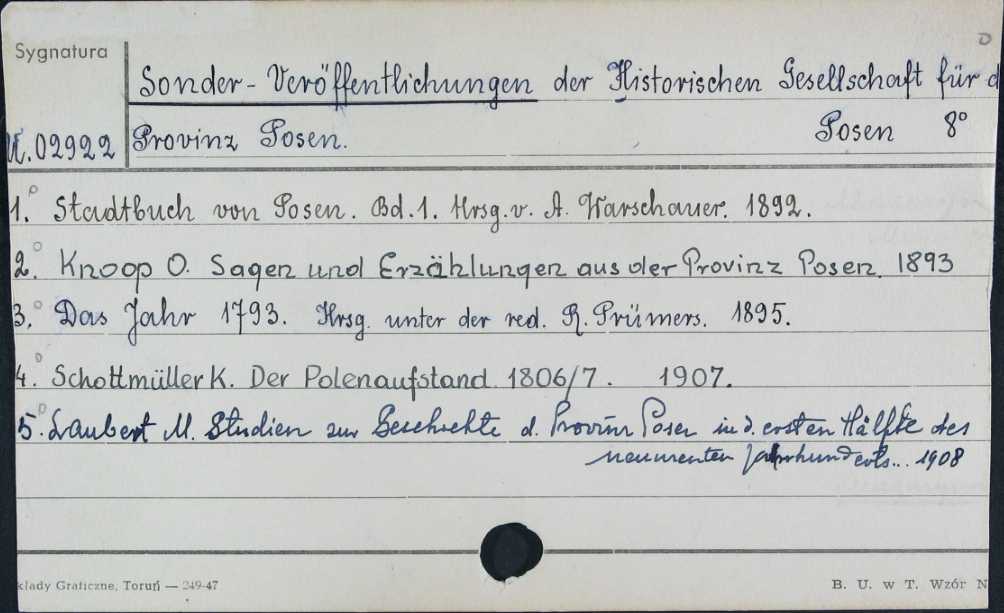 Sygnatura
Sonder-Veröffentlichungen der Historischen Gesellschaft für d
02922 Provinz Posen. Posen 8°
1. Stadtbuch von Posen. Bd.1. Hrsg.v. A. Warschauer. 1892.
2. Knoop O. Sagen und Erzählungen aus der Provinz Posen. 1893
3. Das Jahr 1793. Hrsg. unter der red. R. Prümers. 1895.
4. Schottmüller K. Der Polenaufstand 1806/7. 1907.
5. Laubert M. Studien zur Geschichte d. Provinz Posen in d. ersten Hälfte des
neunzenten Jahrhunderts... 1908
kłady Graficzne, Toruń — 249-47
B. U. w T. Wzór N